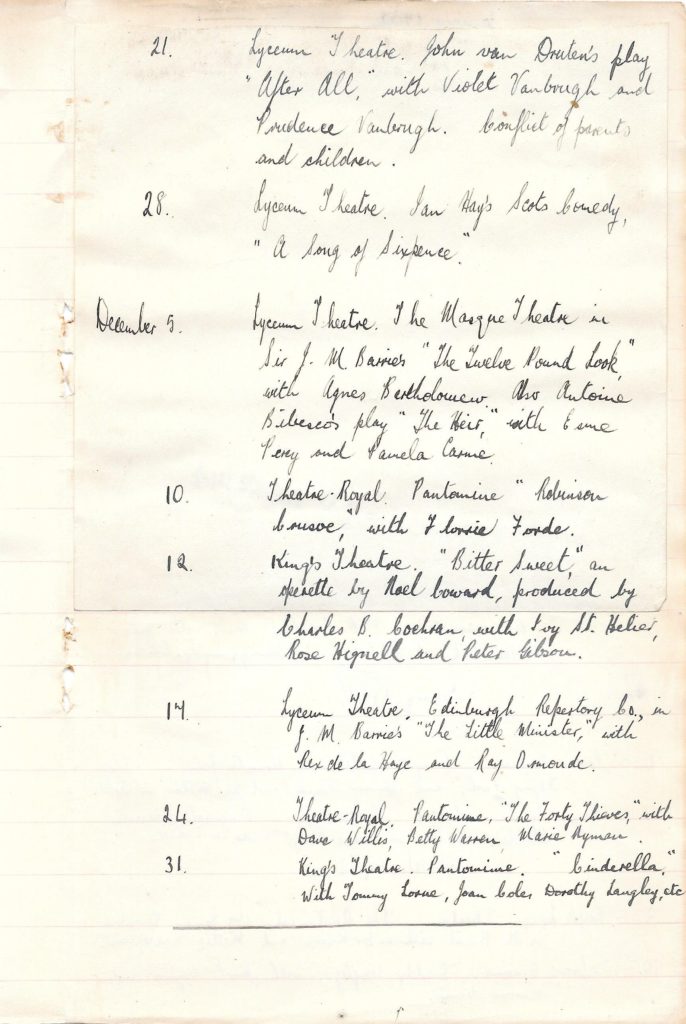 21. Lyceum Theatre. John van Druten's play
"After All," with Violet Vanbrugh and
Prudence Vanbrugh. Conflict of parents
and children.
28. Lyceum Theatre. Ian Hay's Scots Comedy,
"A Song of Sixpence".
December 5. Lyceum Theatre. The Masque Theatre in
Sir J. M. Barrie's "The Twelve Pound Look,"
with Agnes Bartholomew. Also Antoine
Bibesco's play "The Heir," with Esme
Percy and Pamela Carme.
10. Theatre-Royal. Pantomine "Robinson
Crusoe," with Florrie Forde.
12. King's Theatre. "Bitter Sweet," an
operette by Noel Coward, produced by
Charles B. Cochran, with Ivy St. Helier,
Rose Hignell and Peter Gibson.
17. Lyceum Theatre. Edinburgh Repertory Co., in
J. M. Barrie's "The Little Minister," with
Rex de la Haye and Ray Ormonde.
24. Theatre-Royal. Pantomine. "The Forty Thieves," with
Dave Willis, Betty Warren, Marie Hyman.
31. King's Theatre. Pantomime. "Cinderella,"
With Tommy Lorne, Joan Coles, Dorothy Langley, etc